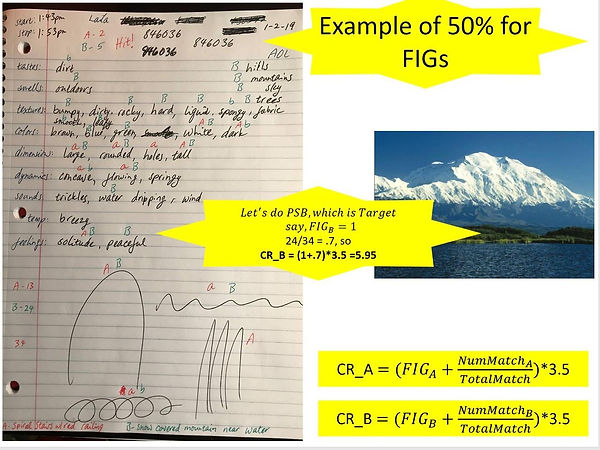 Example of 50% for
FIGs
start: 1:43pm
stop: 1:53pm
Lada
A-2
B-5
Hit!
846036
846036
846036
1-2-19
AOL
B hills
B mountains
B sky
b B trees
tastes: dirt
smells: outdoors
textures: bumpy, dirty, rocky, hard, liquid, spongy, fabric
smooth, leafy
colors: brown, blue, green, white, dark
dimensions: large, rounded, holes, tall
dynamics: concave, flowing, springy
sounds: trickles, water dripping, wind
temp: breezy
feelings: solitude, peaceful
A-13
B-24
34
A B
a B
A
a b
A- Spiral stairs w/red railing
B- Snow covered mountain near water
Let's do PSB, which is Target
say, FIG_B = 1
24/34 = .7, so
CR_B = (1+.7)*3.5 =5.95
CR_A = (FIG_A + NumMatch_A/TotalMatch)*3.5
CR_B = (FIG_B + NumMatch_B/TotalMatch)*3.5